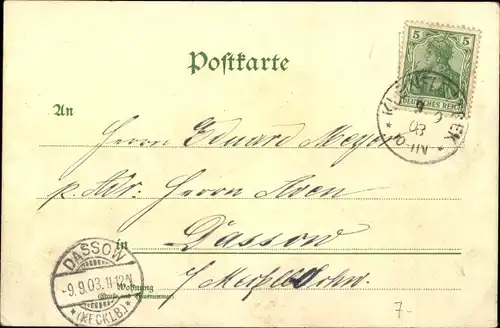 Postkarte
5
DEUTSCHES REICH
An
Herrn Eduard Meyer
p. Adr. Herrn
in Dassow
DASSOW
-9.9.03.11-12N
*(MECKLB.)*
Wohnung
(Straße und Hausnummer)
7-